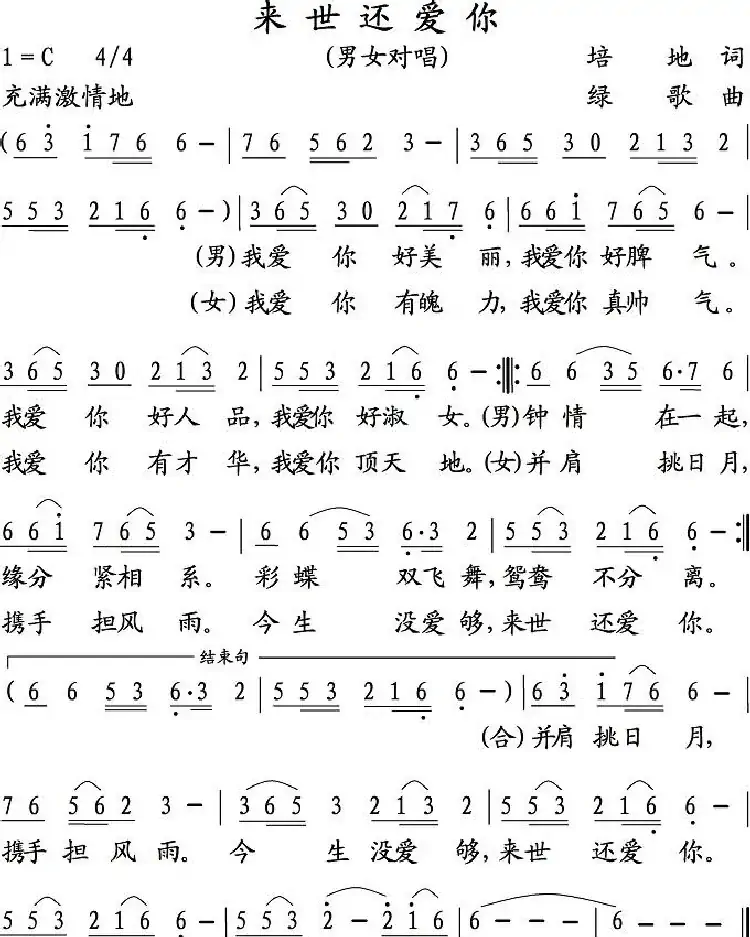 来世还爱你
1=C 4/4 (男女对唱) 培地词
充满激情地 绿歌曲
(6 3 1 7 6 6 - | 7 6 5 6 2 3 - | 3 6 5 3 0 2 1 3 2 |
5 5 3 2 1 6 6 - ) | 3 6 5 3 0 2 1 7 6 | 6 6 1 7 6 5 6 - |
(男)我爱你好美丽,我爱你好脾气。
(女)我爱你有魄力,我爱你真帅气。
3 6 5 3 0 2 1 3 2 | 5 5 3 2 1 6 6 - :||: 6 6 3 5 6·7 6 |
我爱你好人品,我爱你好淑女。(男)钟情在一起,
我爱你有才华,我爱你顶天地。(女)并肩挑日月,
6 6 1 7 6 5 3 - | 6 6 5 3 6·3 2 | 5 5 3 2 1 6 6 - :||
缘分紧相系。彩蝶双飞舞,鸳鸯不分离。
携手担风雨。今生没爱够,来世还爱你。
结束句
(6 6 5 3 6·3 2 | 5 5 3 2 1 6 6 - ) | 6 3 1 7 6 6 - |
(合)并肩挑日月,
7 6 5 6 2 3 - | 3 6 5 3 2 1 3 2 | 5 5 3 2 1 6 6 - |
携手担风雨。今生没爱够,来世还爱你。
5 5 3 2 1 6 6 - | 5 5 3 2 - 2 1 6 | 6 - - - | 6 - - - ||